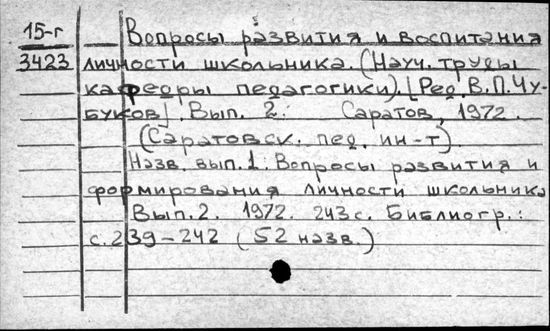 15-г Вопросы развития и воспитания
3423 личности школьника. (Науч. труды
кафедры педагогики). [Ред. В.П. Чу-
буков]. Вып. 2. Саратов, 1972.
(Саратовск. пед. ин-т).
Назв. вып. 1: Вопросы развития и
формирования личности школьника
Вып. 2. 1972. 243 с. Библиогр.:
с. 239-242 (52 назв.)